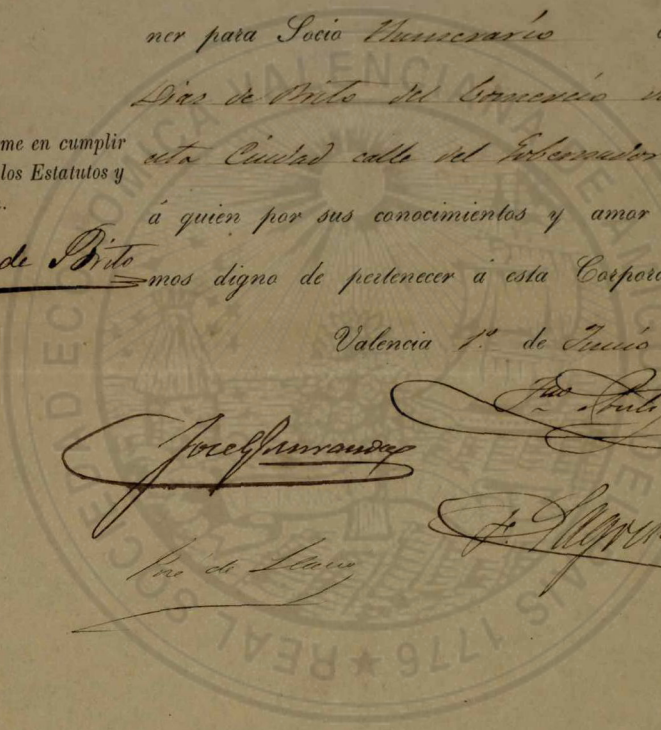 ner para Socio Numerario
Dias de Brito del Comercio
me en cumplir
los Estatutos y
esta Ciudad calle del Gobernador
á quien por sus conocimientos y amor
de Brito
mos digno de pertenecer á esta Corpora
Valencia 1º de Junio
José de Llano
REAL SOCIEDAD ECONOMICA VALENCIANA DE AMIGOS DEL PAIS 1776